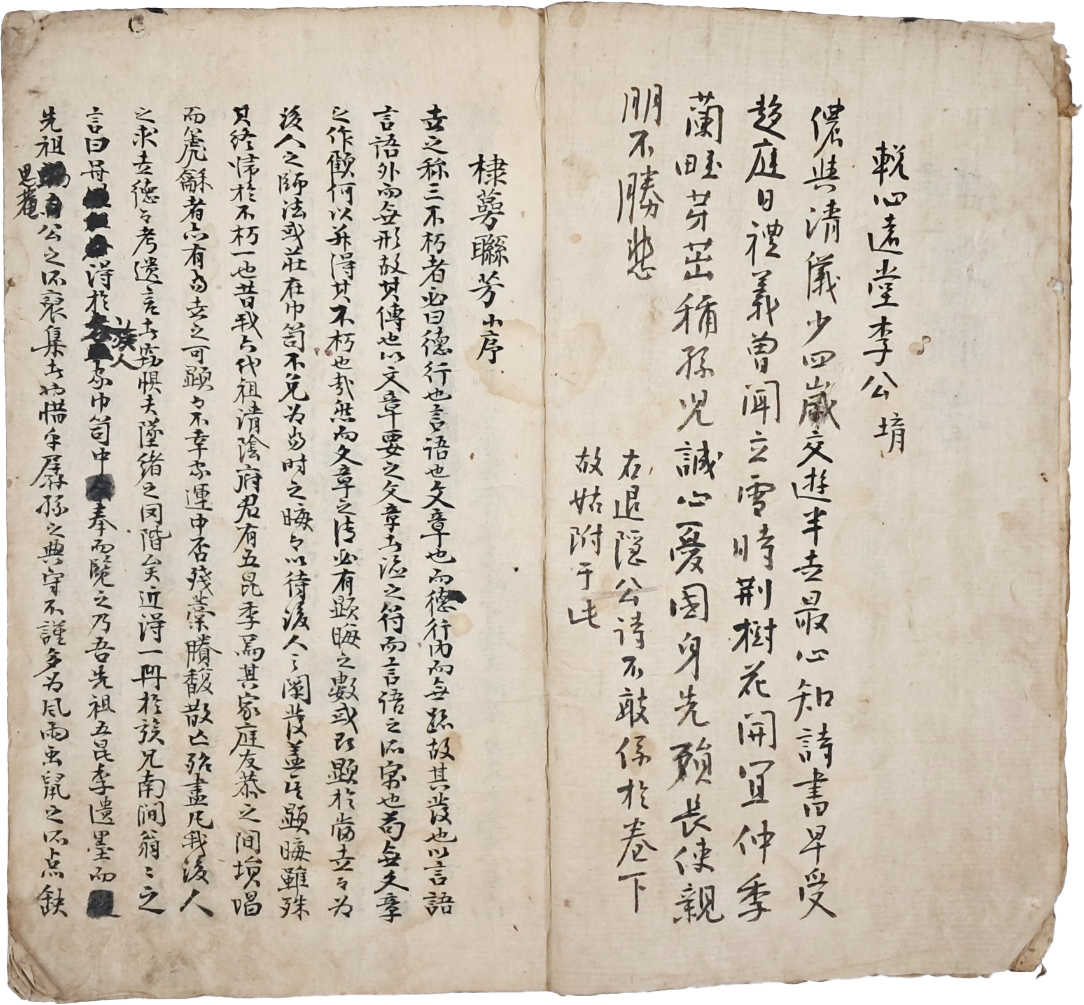 輓心遠堂李公堉
儂與清儀少四歲交遊半世最心知詩書早受
趍庭日禮義曾聞立雪時荆樹花開宜仲季
蘭畦芽茁穪孫児誠心憂國身先殞長使親
朋不勝悲
右退隱公詩不敢係於卷下
故姑附于此
棣萼聯芳小序
世之称三不朽者必曰德行也言語也文章也而德行內而無跡故其發也以言語
言語外而無形故其傳也以文章要之文章者德之符而言語之所寓也苟無文章
之作歟何以并得其不朽也哉然而文章之傳必有顯晦之數或以顯於當世々為
後人之師法或莊在巾笥不免為当時之晦々以待後人之闡發盖其顯晦雖殊
其終歸於不朽一也昔我六代祖清陰府君有五昆季焉其家庭友恭之間塤唱
而篪龢者亦有当世之可顯々不幸家運中否殘藁賸馥散亡殆盡凡我後人
之求世德々考遺言者窃惧夫墜緒之罔階矣近得一冊於族兄南澗翁々之
言曰 得於族人家巾笥中奉而覽之乃吾先祖五昆季遺墨而
先祖思菴公之所裒集者也惜乎孱孫之典守不謹多為風雨虫鼠之所点缺